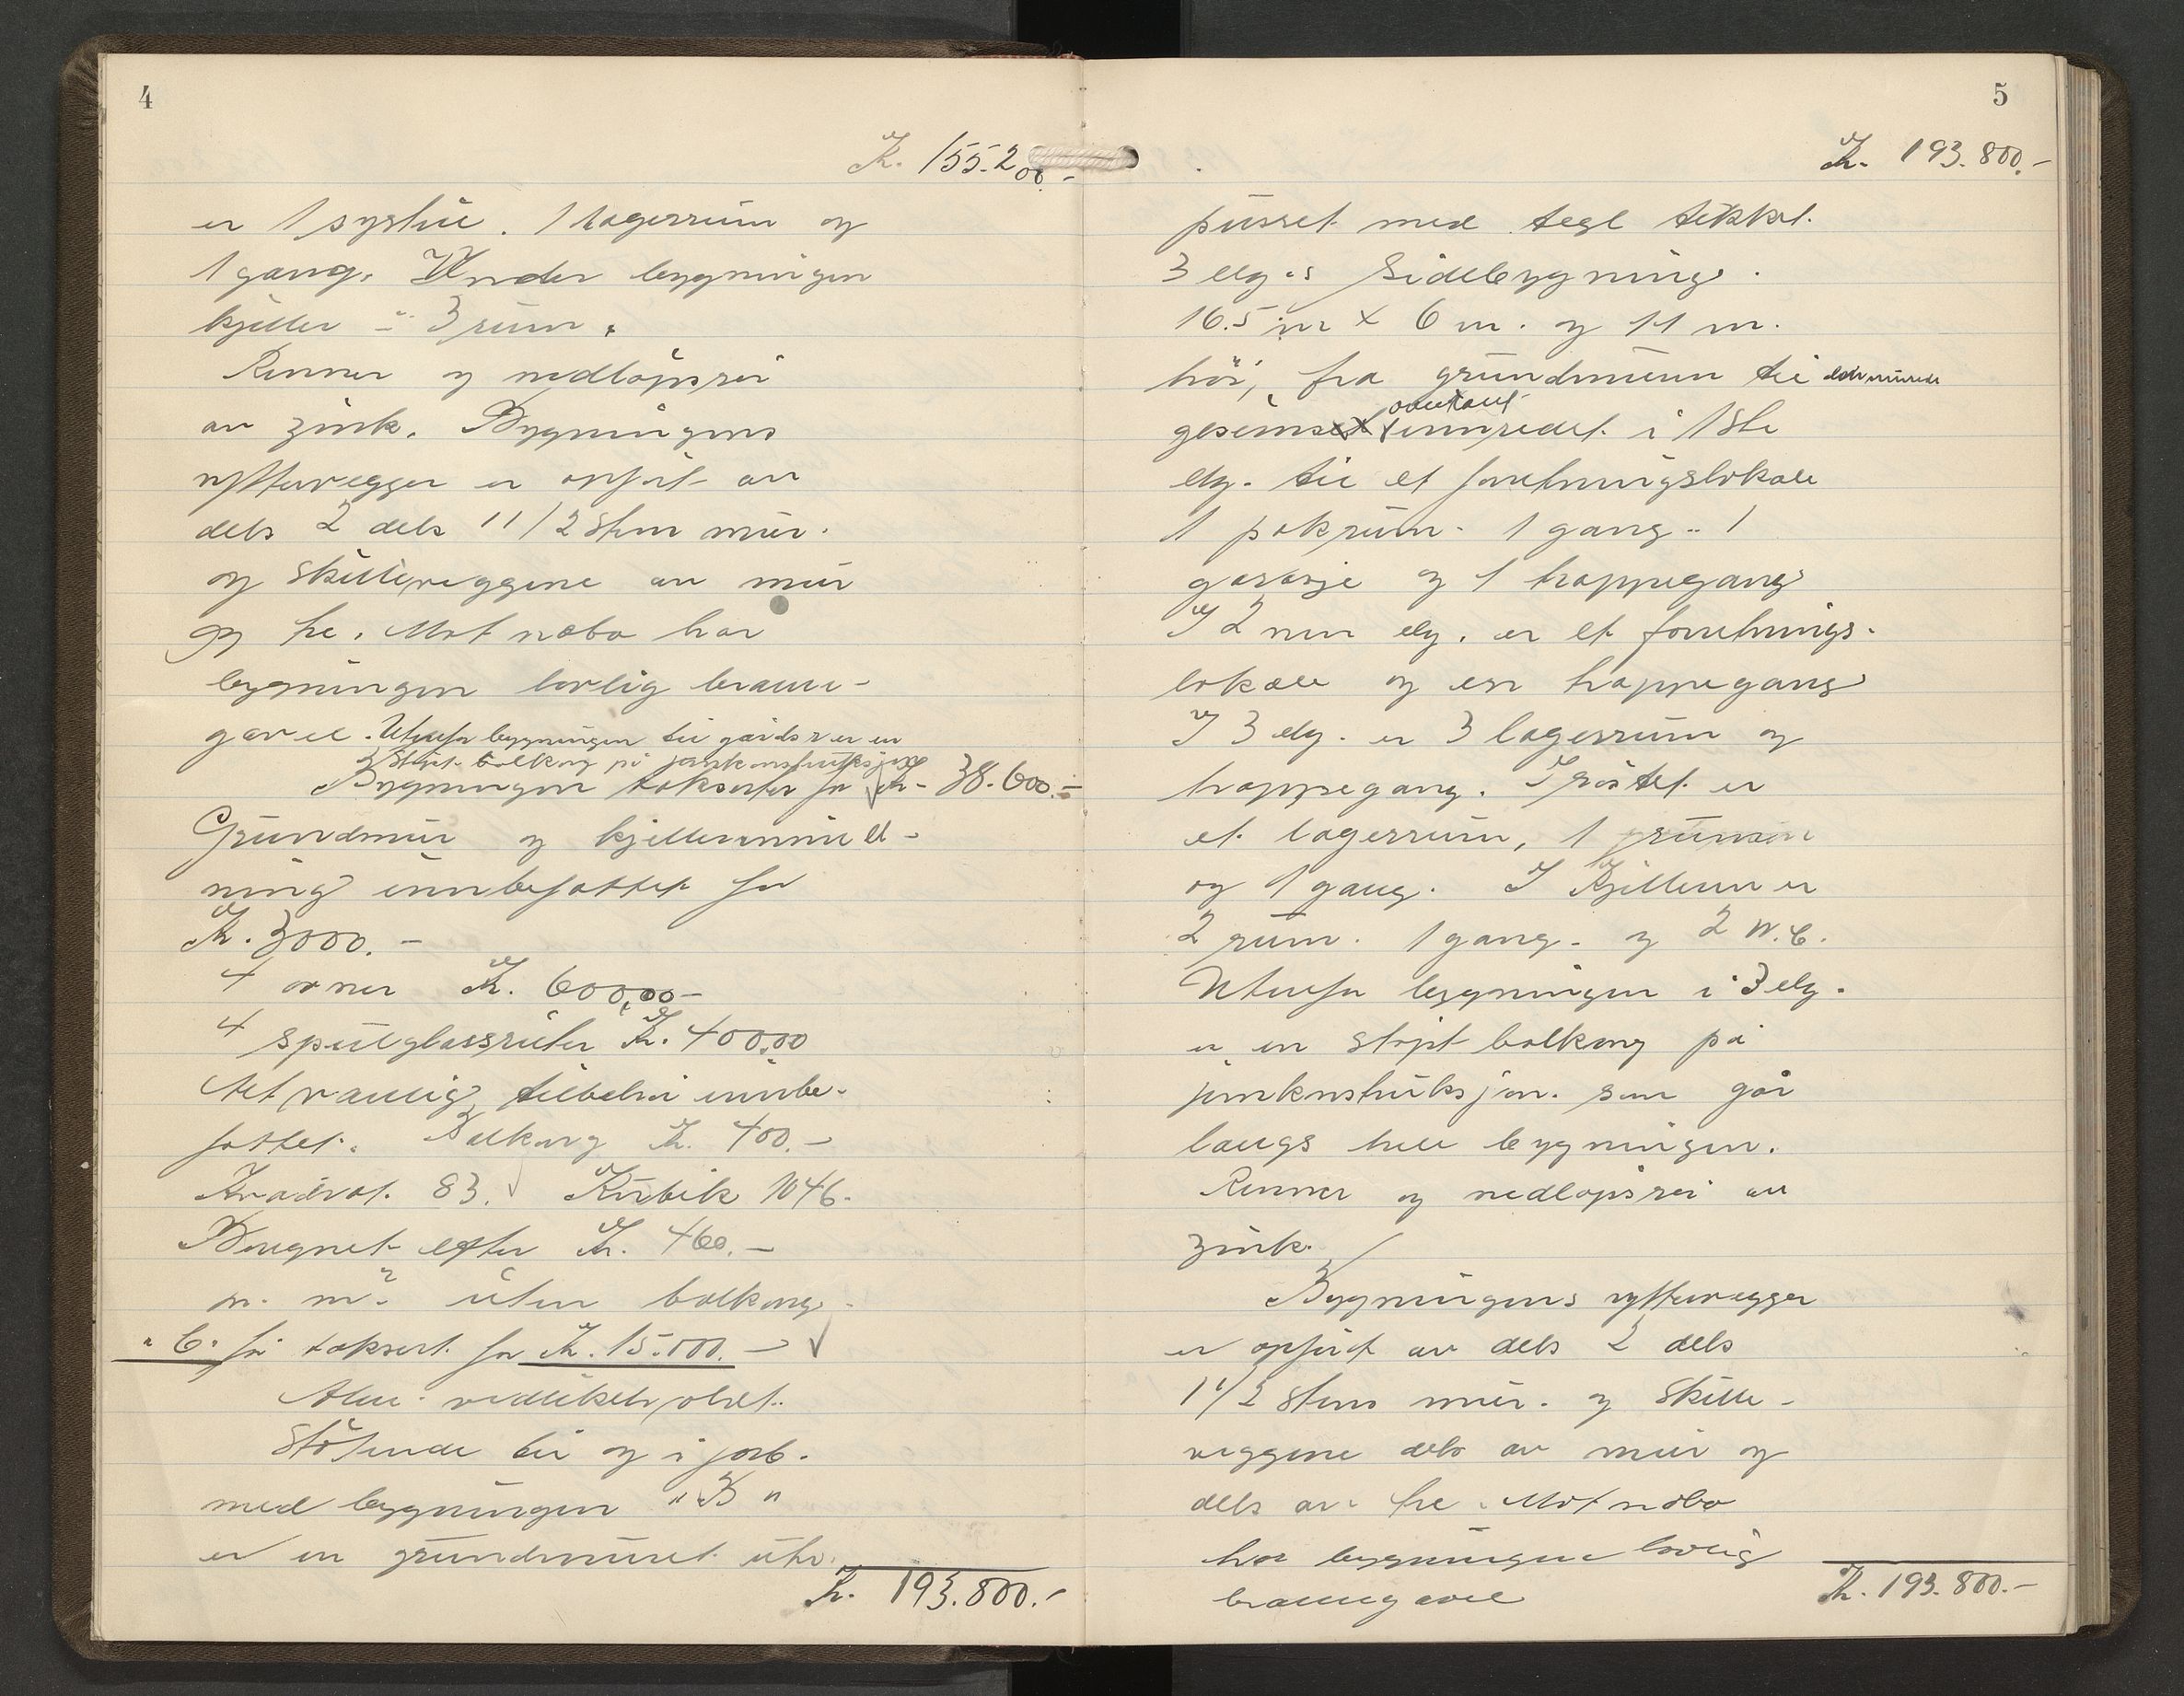 4
Kr. 155.200.-
er 1 systue. 1 lagerrum og
1 gang. Under bygningen
kjeller = 3 rum.
Renner og nedløpsrør
av zink. Bygningens
yttervegger er opført av
dels 2 dels 1 1/2 sten mur.
og skilleveggene av mur
og tre. Mot nabo har
bygningen lovlig brann-
gavel. Utenfor bygningen til gårdsr er en
støpt balkong på jernkonstruksjon
Bygningen takseres for Kr. 38.600.-
Grundmur og kjellerinnred-
ning innbefattet for
Kr. 3000.-
4 ovner Kr. 600,00-
4 speilglassruter Kr. 400,00
Alt vanlig tilbehør innbe-
fattet. Balkong Kr. 400.-
Kvadrat. 83. Kubik 1046.
Beregnet efter Kr. 460.-
pr. m² uten balkong.
"C" før taksert for Kr. 15.000.-
Alm. vedlikeholdt.
Støtende til og i forb.
med bygningen "B"
er en grundmuret uthr.
Kr. 193.800.-
5
Kr. 193.800.-
pusset med tegl tekket
3 etg.s Sidebygning.
16.5 m x 6 m. og 11 m.
høi, fra grundmuren til den murede
overkant
gesims innredet i 1ste
etg. til et forretningslokale
1 pakrum. 1 gang. 1
garasje og 1 trappegang
I 2nen etg. er et forretnings-
lokale og en trappegang
I 3 etg. er 3 lagerrum og
trappegang. I røstet er
et lagerrum, 1
og 1 gang. I Kjelleren er
2 rum. 1 gang. og 2 W.C.
Utenfor bygningen i 3 etg.
er en støpt balkong på
jernkonstruksjon. som går
langs hele bygningen.
Renner og nedløpsrør av
zink.
Bygningens yttervegger
er opført av dels 2 dels
1 1/2 stens mur. og skille-
veggene dels av mur og
dels av tre. Mot nabo
har bygningen lovlig
branngavel
Kr. 193.800.-